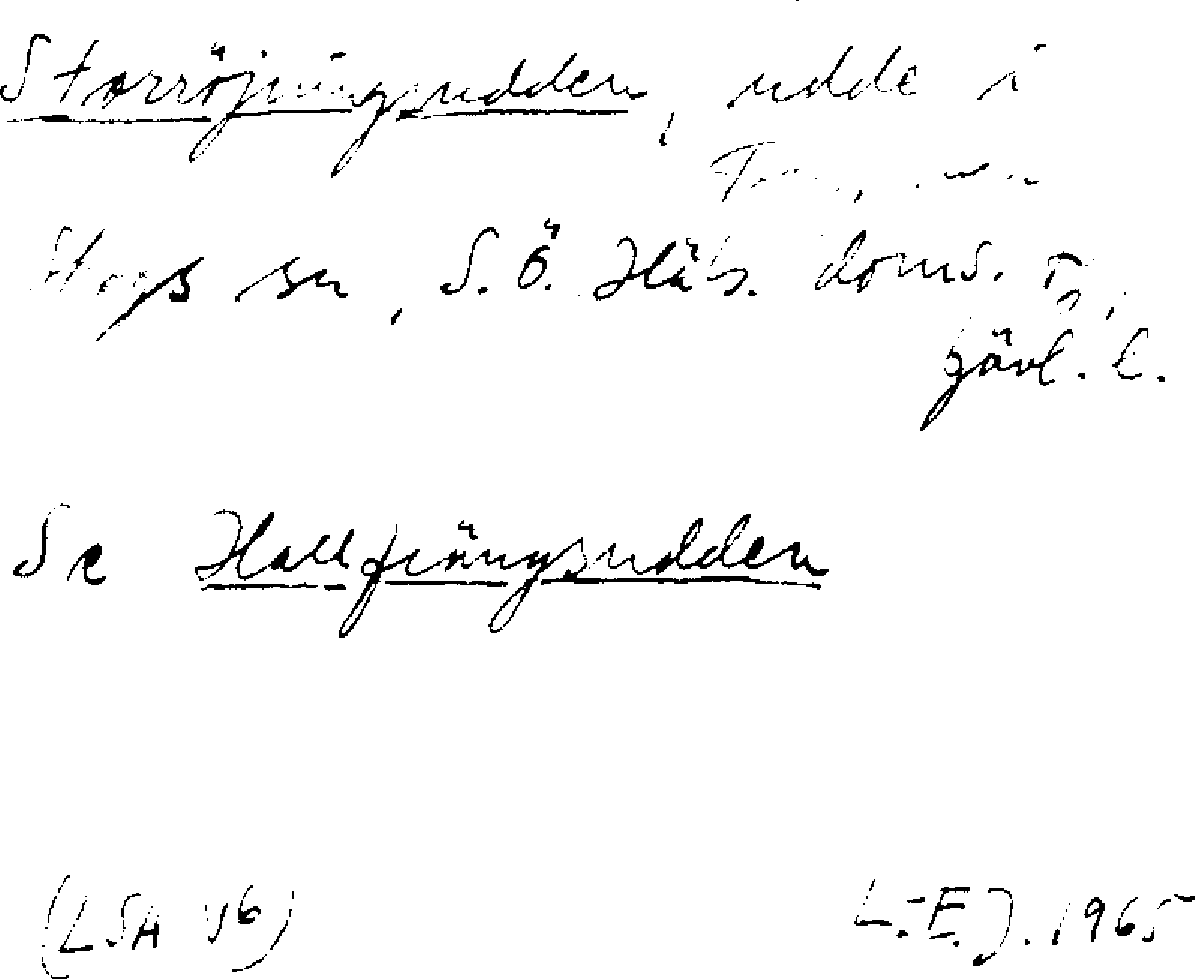 Storröjningsudden, udde i
Hogs sn, S.Ö. Häls. doms.
Gävl. l.
Se Hallfrängsudden
(LSA V6)
L.-E.J. 1965